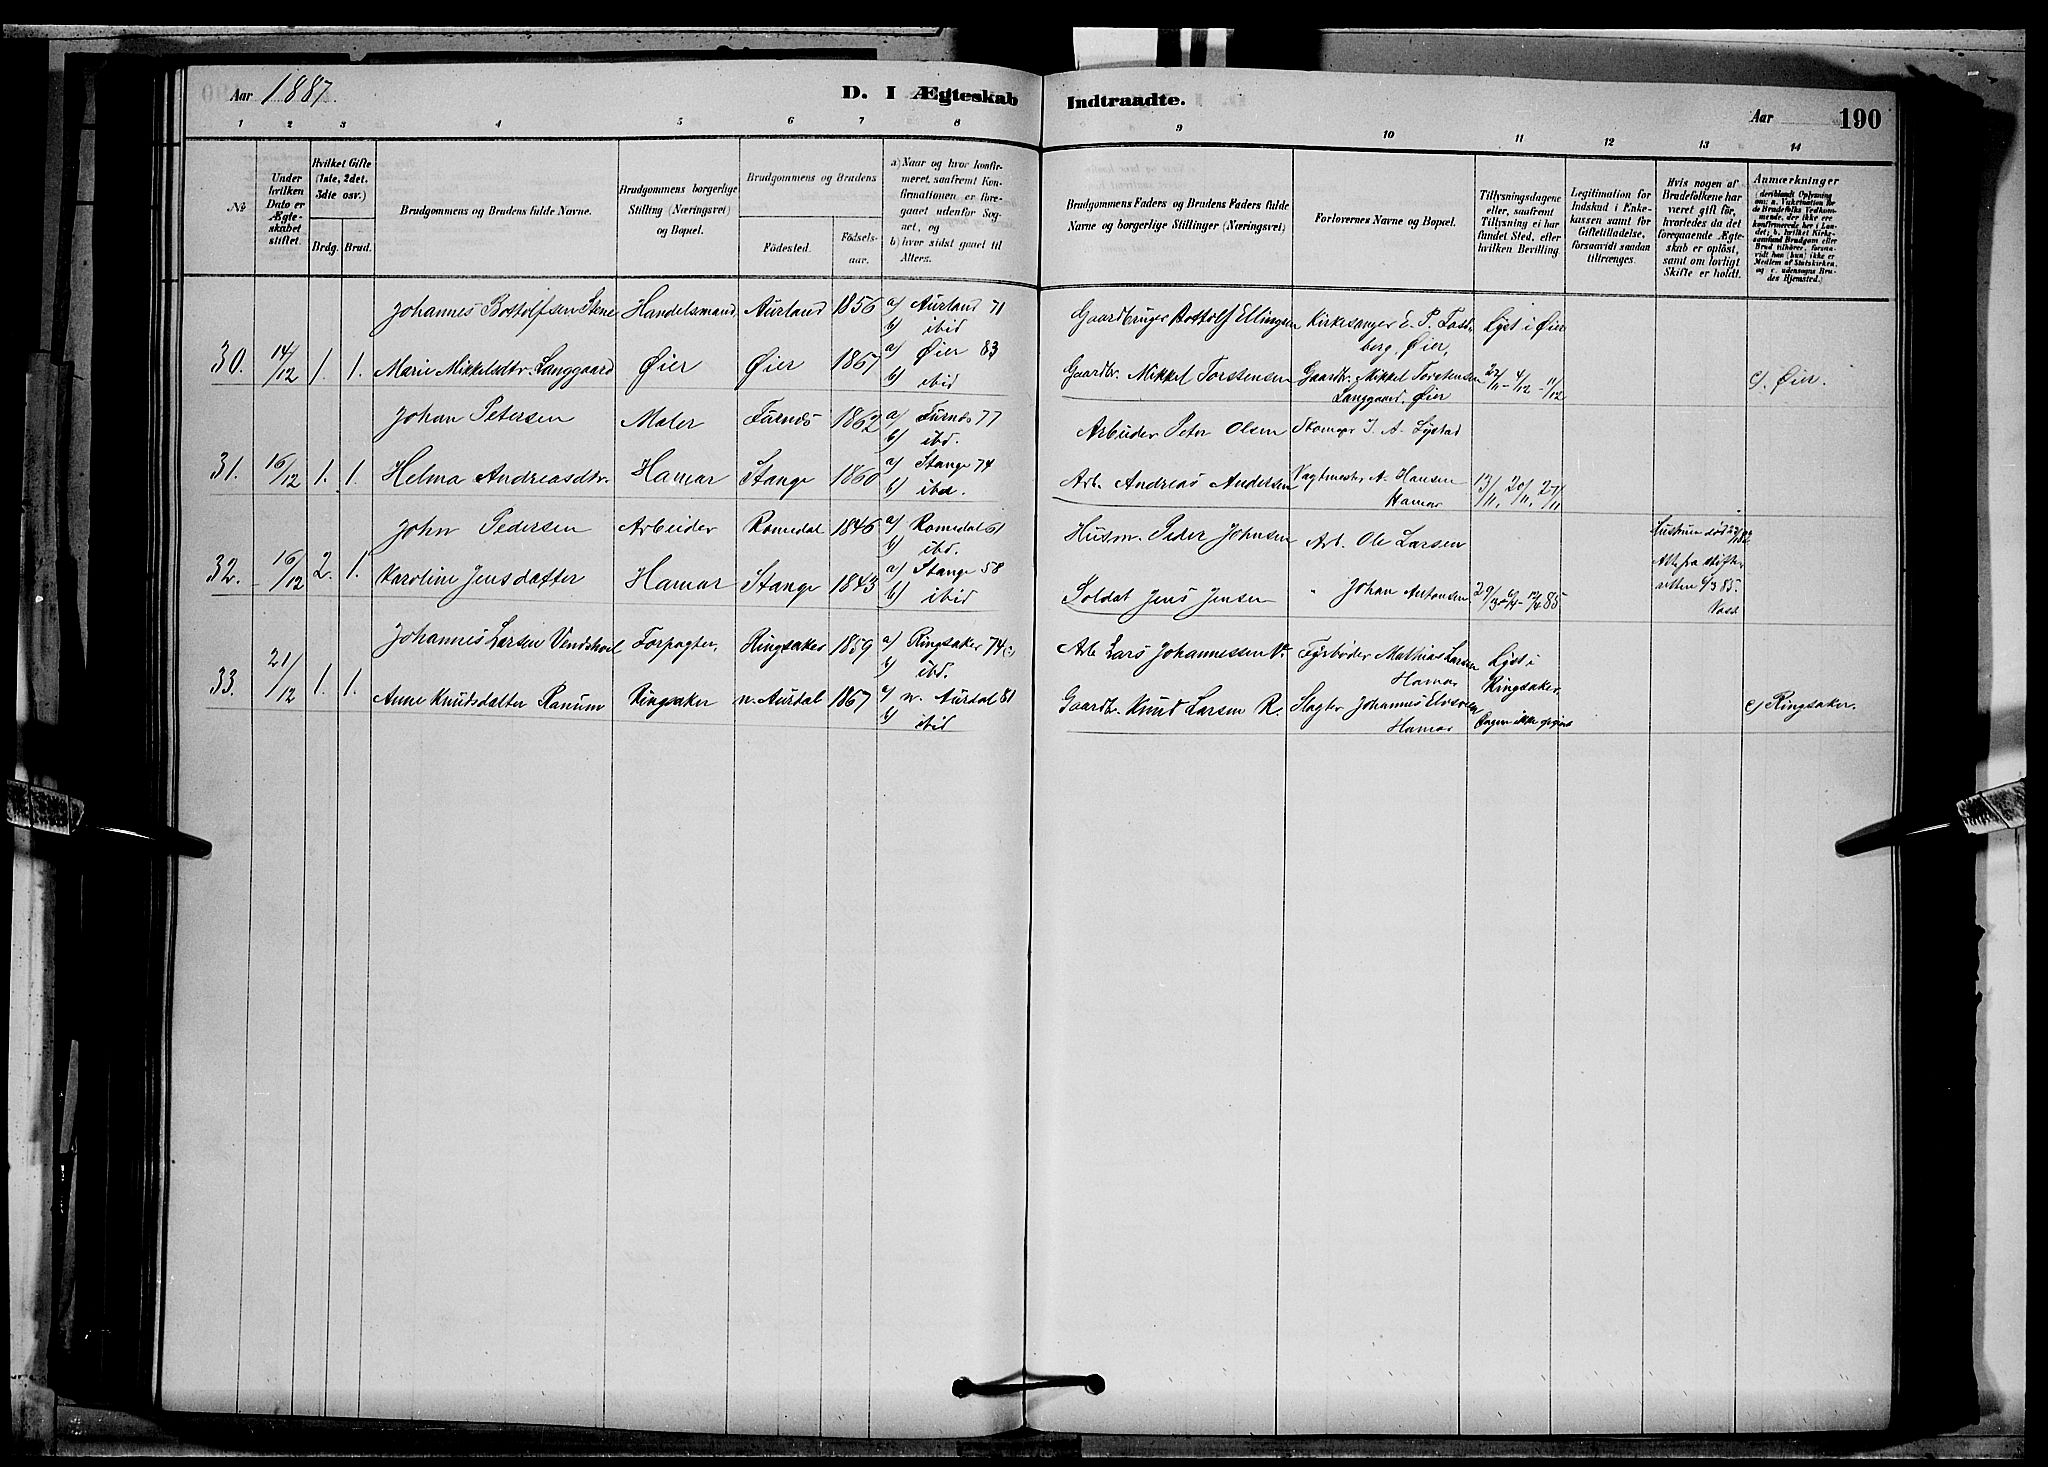 Aar 1887.
D. I Ægteskab Indtraadte.
Aar 190
1 2 3 4 5 6 7 8 9 10 11 12 13 14
№
Under hvilken Dato er Ægteskabet stiftet.
Hvilket Gifte (1ste, 2det, 3die osv.)
Brdg. Brud.
Brudgommens og Brudens fulde Navne.
Brudgommens borgerlige Stilling (Næringsvei) og Bopæl.
Brudgommens og Brudens
Fødested. Fødselsaar.
a) Naar og hvor konfirmeret, saafremt Konfirmationen er foregaaet udenfor Sognet, og
b) hvor sidst gaaet til Alters.
Brudgommens Faders og Brudens Faders fulde Navne og borgerlige Stillinger (Næringsvei)
Forlovernes Navne og Bopæl.
Tillysningsdagene eller, saafremt Tillysning ei har fundet Sted, efter hvilken Bevilling
Legitimation for Indskud i Enkekassen samt for Giftetilladelse, forsaavidt saadan tiltrænges.
Hvis nogen af Brudefolkene har været gift før, hvorledes da det foregaaende Ægteskab er opløst, samt om lovligt Skifte er holdt.
Anmærkninger
Johannes Bottolfsen Stene Handelsmand Aurland 1856 a) Aurland 71
b) ibid
Gaardbruger Bottolf Ellingsen Kirkesanger E. P. Fossberg, Øier, Lyst i Øier
30. 14/12 1. 1. Marie Mikkelsdtr. Langgaard Øier Øier 1867 a) Øier 83
b) ibid
Gaardbr. Mikkel Torstensen Gaardbr. Mikkel Torstensen 27/11 - 4/12 - 11/12 c) Øier.
Langgaard, Øier
Johan Petersen Maler Furnæs 1862 a) Furnæs 77
b) ibd.
Arbeider Peter Olsen Skomager J. A. Lystad
31. 16/12 1. 1. Helma Andreasdtr. Hamar Stange 1860 a) Stange 74
b) ibd.
Arb. Andreas Andersen Vagtmester A. Hansen 13/11, 20/11, 27/11
Hamar
John Pedersen Arbeider Romedal 1846 a) Romedal 61
b) ibd.
Husm. Peder Johnsen Arb. Ole Larsen
Hustruen død
32. 16/12 2. 1. Karoline Jensdatter Hamar Stange 1843 a) Stange 58
b) ibid
Soldat Jens Jensen " Johan Antonsen 29/3 85
Att. fra skifteretten 4/3 85.
Johannes Larsen Forpagter Ringsaker 1859 a) Ringsaker 74
b) ibd.
Arb. Lars Johannessen V. Fyrbøder Mathias Larsen Lyst i Ringsaker.
Hamar
33. 21/12 1. 1. Anne Knudsdatter Ranum Ringsaker n. Aurdal 1867 a) n. Aurdal 81
b) ibid
Gaardb. Knud Larsen R. Slagter Johannes Hamar Dagen ikke opgivet c) Ringsaker.